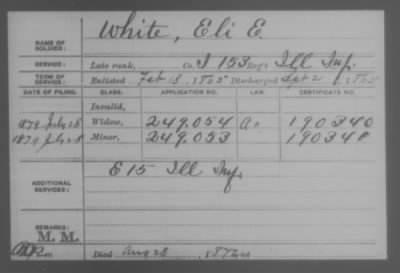 NAME OF SOLDIER: White, Eli E
SERVICE: Late rank, Co. I 153 Reg't Ill Inf.
TERM OF SERVICE: Enlisted Feb 18, 1865 Discharged Sept 21, 1865
DATE OF FILING. CLASS. APPLICATION NO. LAW. CERTIFICATE NO.
Invalid,
1879 July 28 Widow, 249,054 a. 190340
1879 July 28 Minor, 249,053 190340
ADDITIONAL SERVICES: E 15 Ill Inf.
REMARKS:
M. M.
Died Aug 28, 1872, at